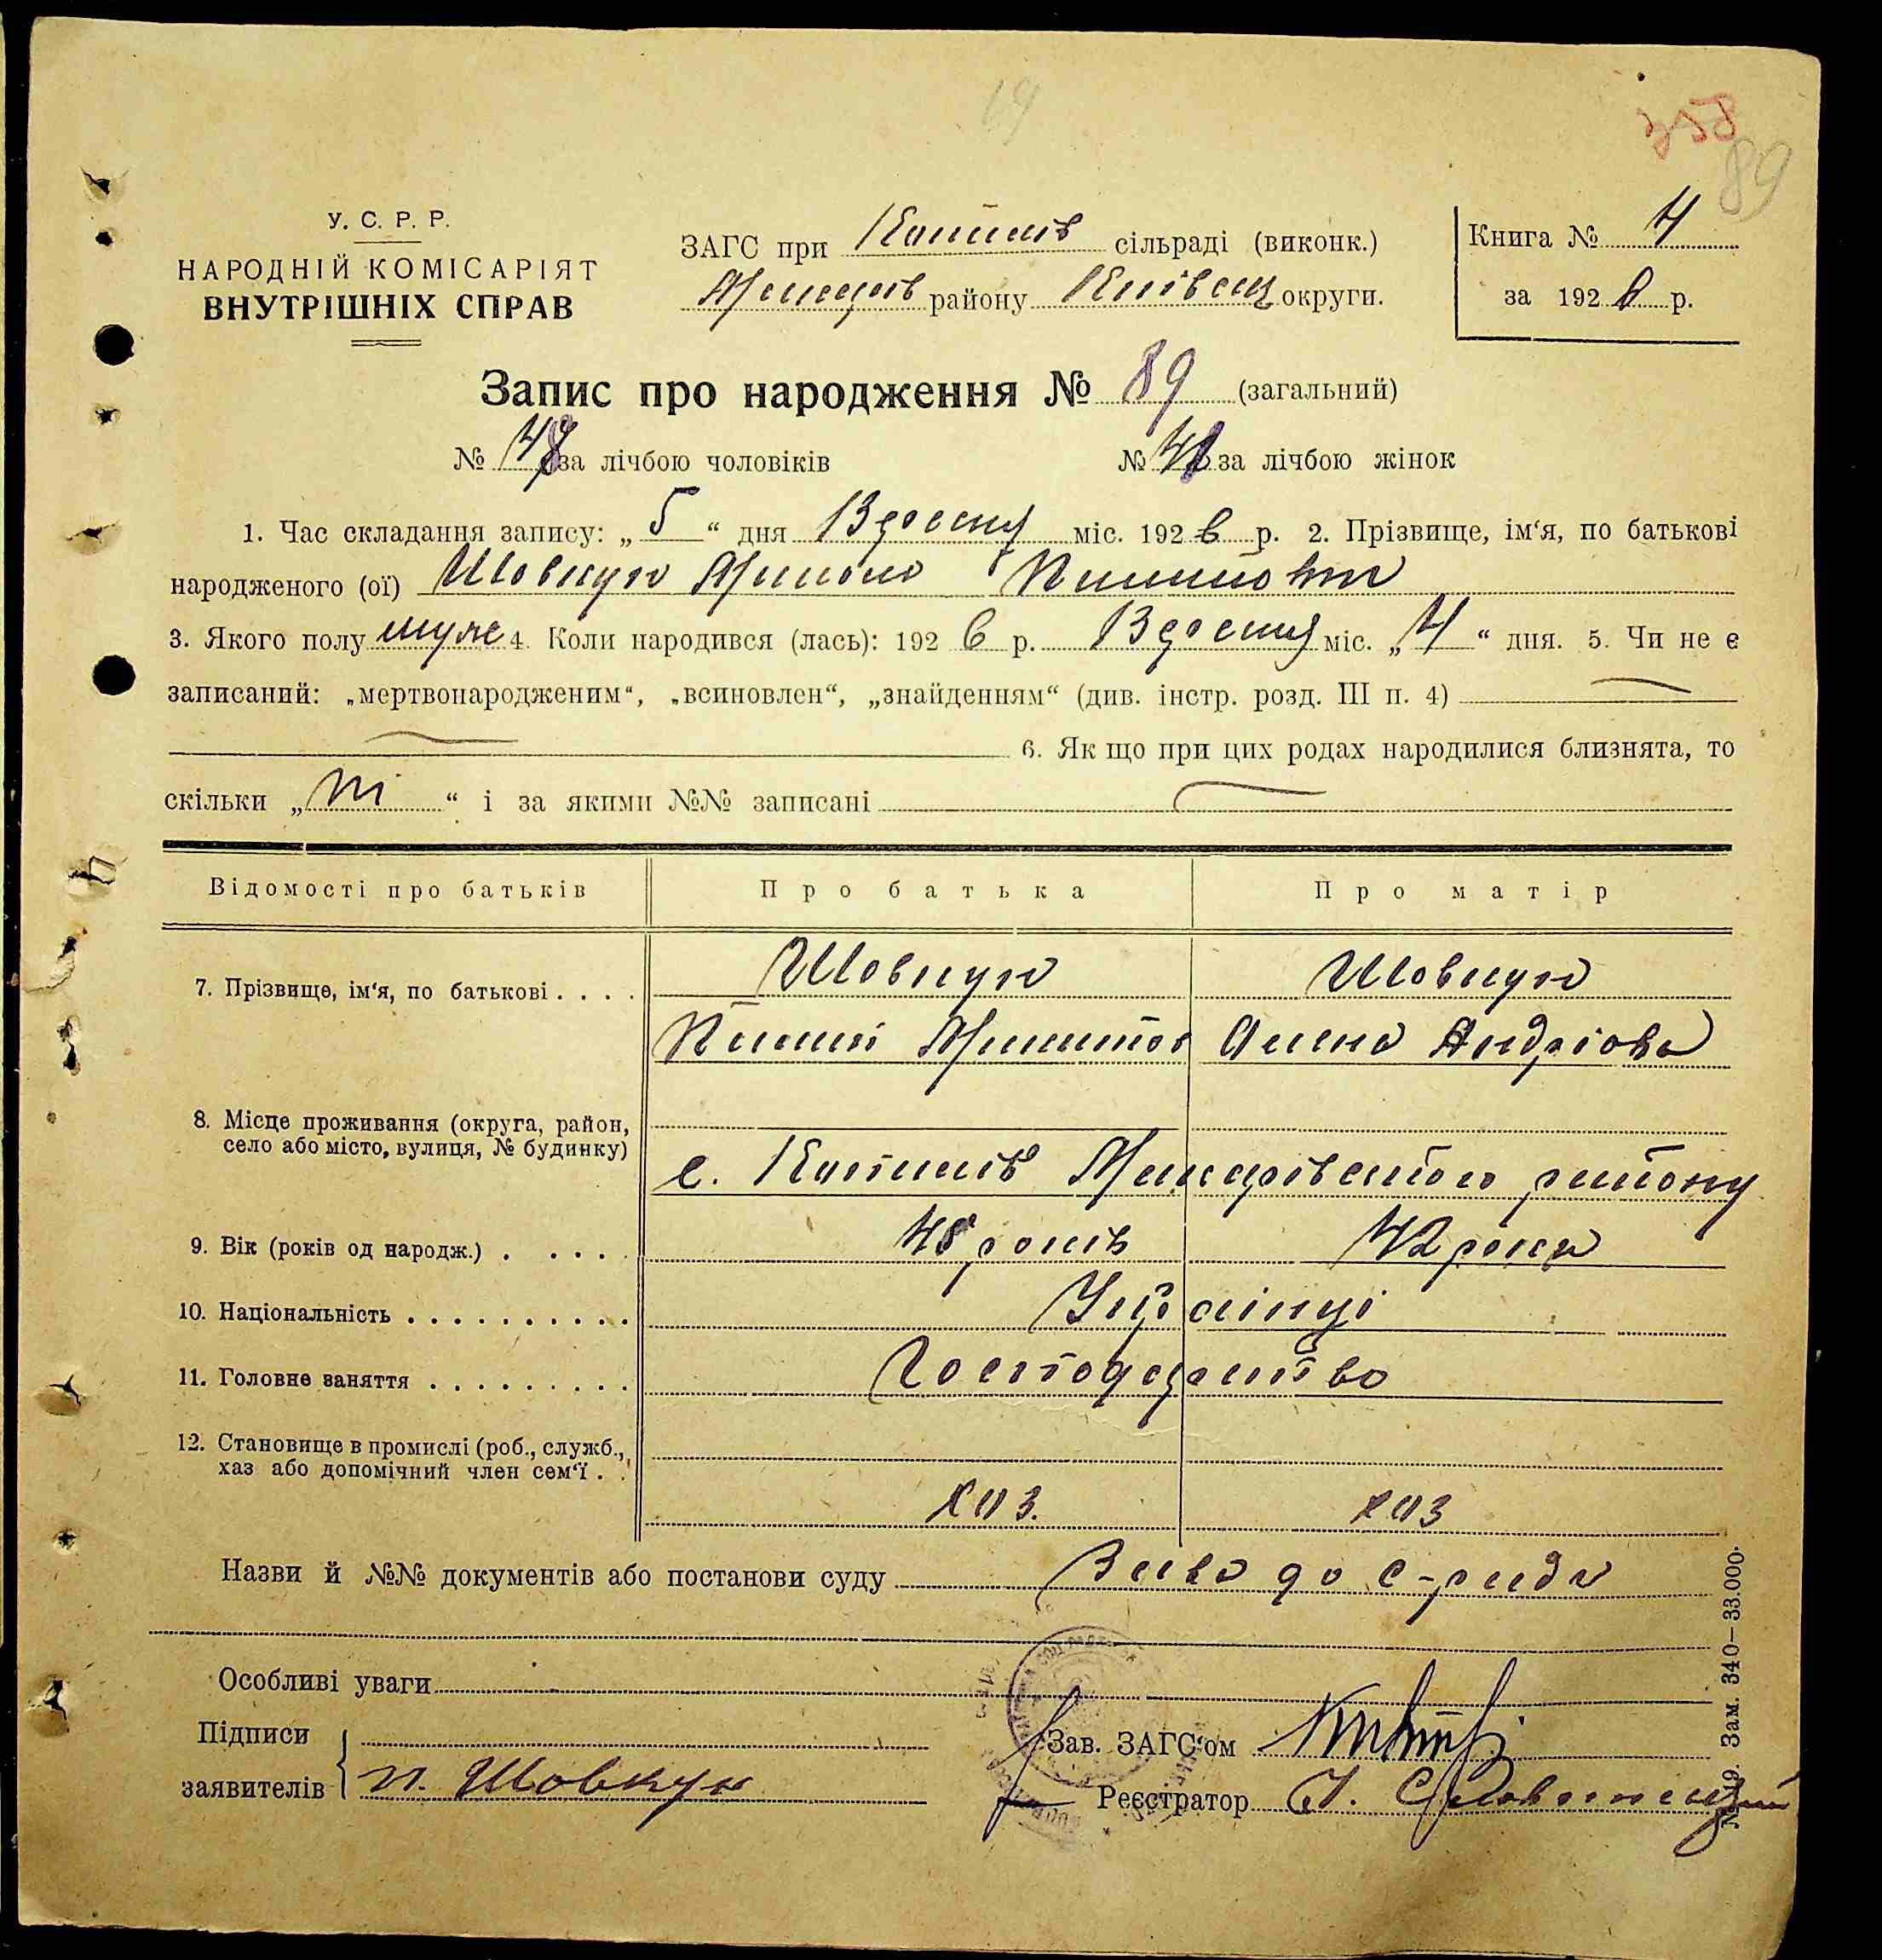 19
358
89
У. С. Р. Р.
НАРОДНІЙ КОМІСАРІЯТ
ВНУТРІШНІХ СПРАВ
ЗАГС при Копилів сільраді (виконк.)
района Київськ округи.
Книга № 4
за 1926 р.
Запис про народження № 89 (загальний)
№ за лічбою чоловіків № 41 за лічбою жінок
1. Час складання запису: „ 5 “ дня Вересня міс. 1926 р. 2. Прізвище, ім‘я, по батькові
народженого (ої) Шовкун Микола Пилипович
3. Якого полу муже 4. Коли народився (лась): 1926 р. Вересня міс. „ 4 “ дня. 5. Чи не є
записаний: „мертвонародженим“, „всиновлен“, „знайденням“ (див. інстр. розд. III п. 4)
6. Як що при цих родах народилися близнята, то
скільки „ ні “ і за якими №№ записані
Відомості про батьків Про батька Про матір
7. Прізвище, ім‘я, по батькові . . . . Шовкун Шовкун
Пилип Микитов Олена Андріова
8. Місце проживання (округа, район,
село або місто, вулиця, № будинку) с. Копилів Макарівського району
9. Вік (років од народж.) . . . . . 45 років 42 роки
10. Національність . . . . . . . . . . Українці
11. Головне заняття . . . . . . . . . Господарство
12. Становище в промислі (роб., служб.,
хаз або допомічний член сем‘ї . .
хаз. хаз
Назви й №№ документів або постанови суду до с-ради
Особливі уваги
Підписи
заявителів п. Шовкун
Зав. ЗАГС‘ом
Реєстратор
№ 19. Зам. 340–33.000.